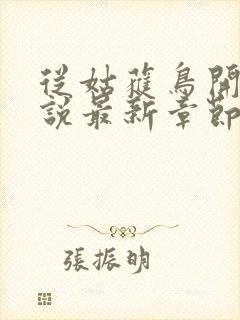 從姑蓷鳥開
說最新章節
張振明